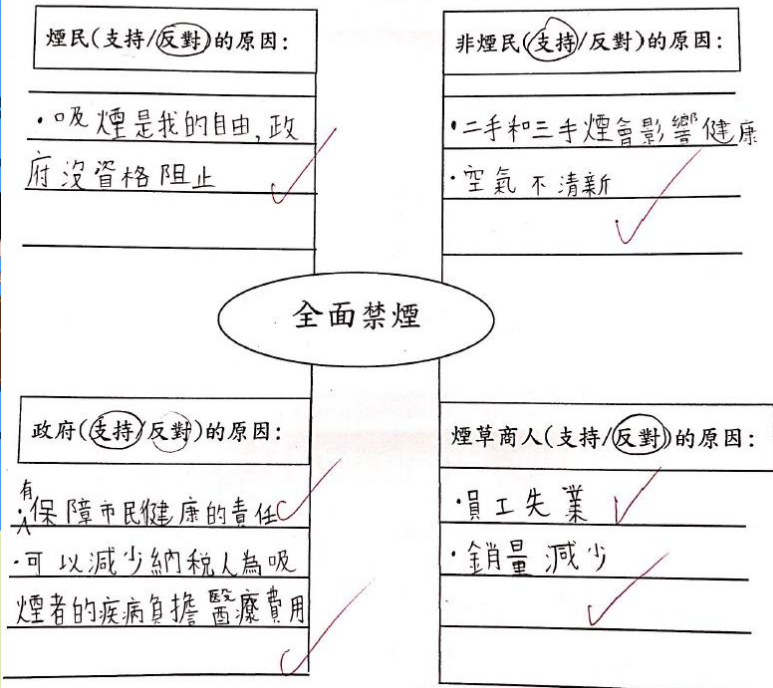 煙民(支持/反對)的原因:
·吸煙是我的自由,政
府沒資格阻止
非煙民(支持/反對)的原因:
·二手和三手煙會影響健康
·空氣不清新
全面禁煙
政府(支持/反對)的原因:
·有保障市民健康的責任
·可以減少納稅人為吸
煙者的疾病負擔醫療費用
煙草商人(支持/反對)的原因:
·員工失業
·銷量減少